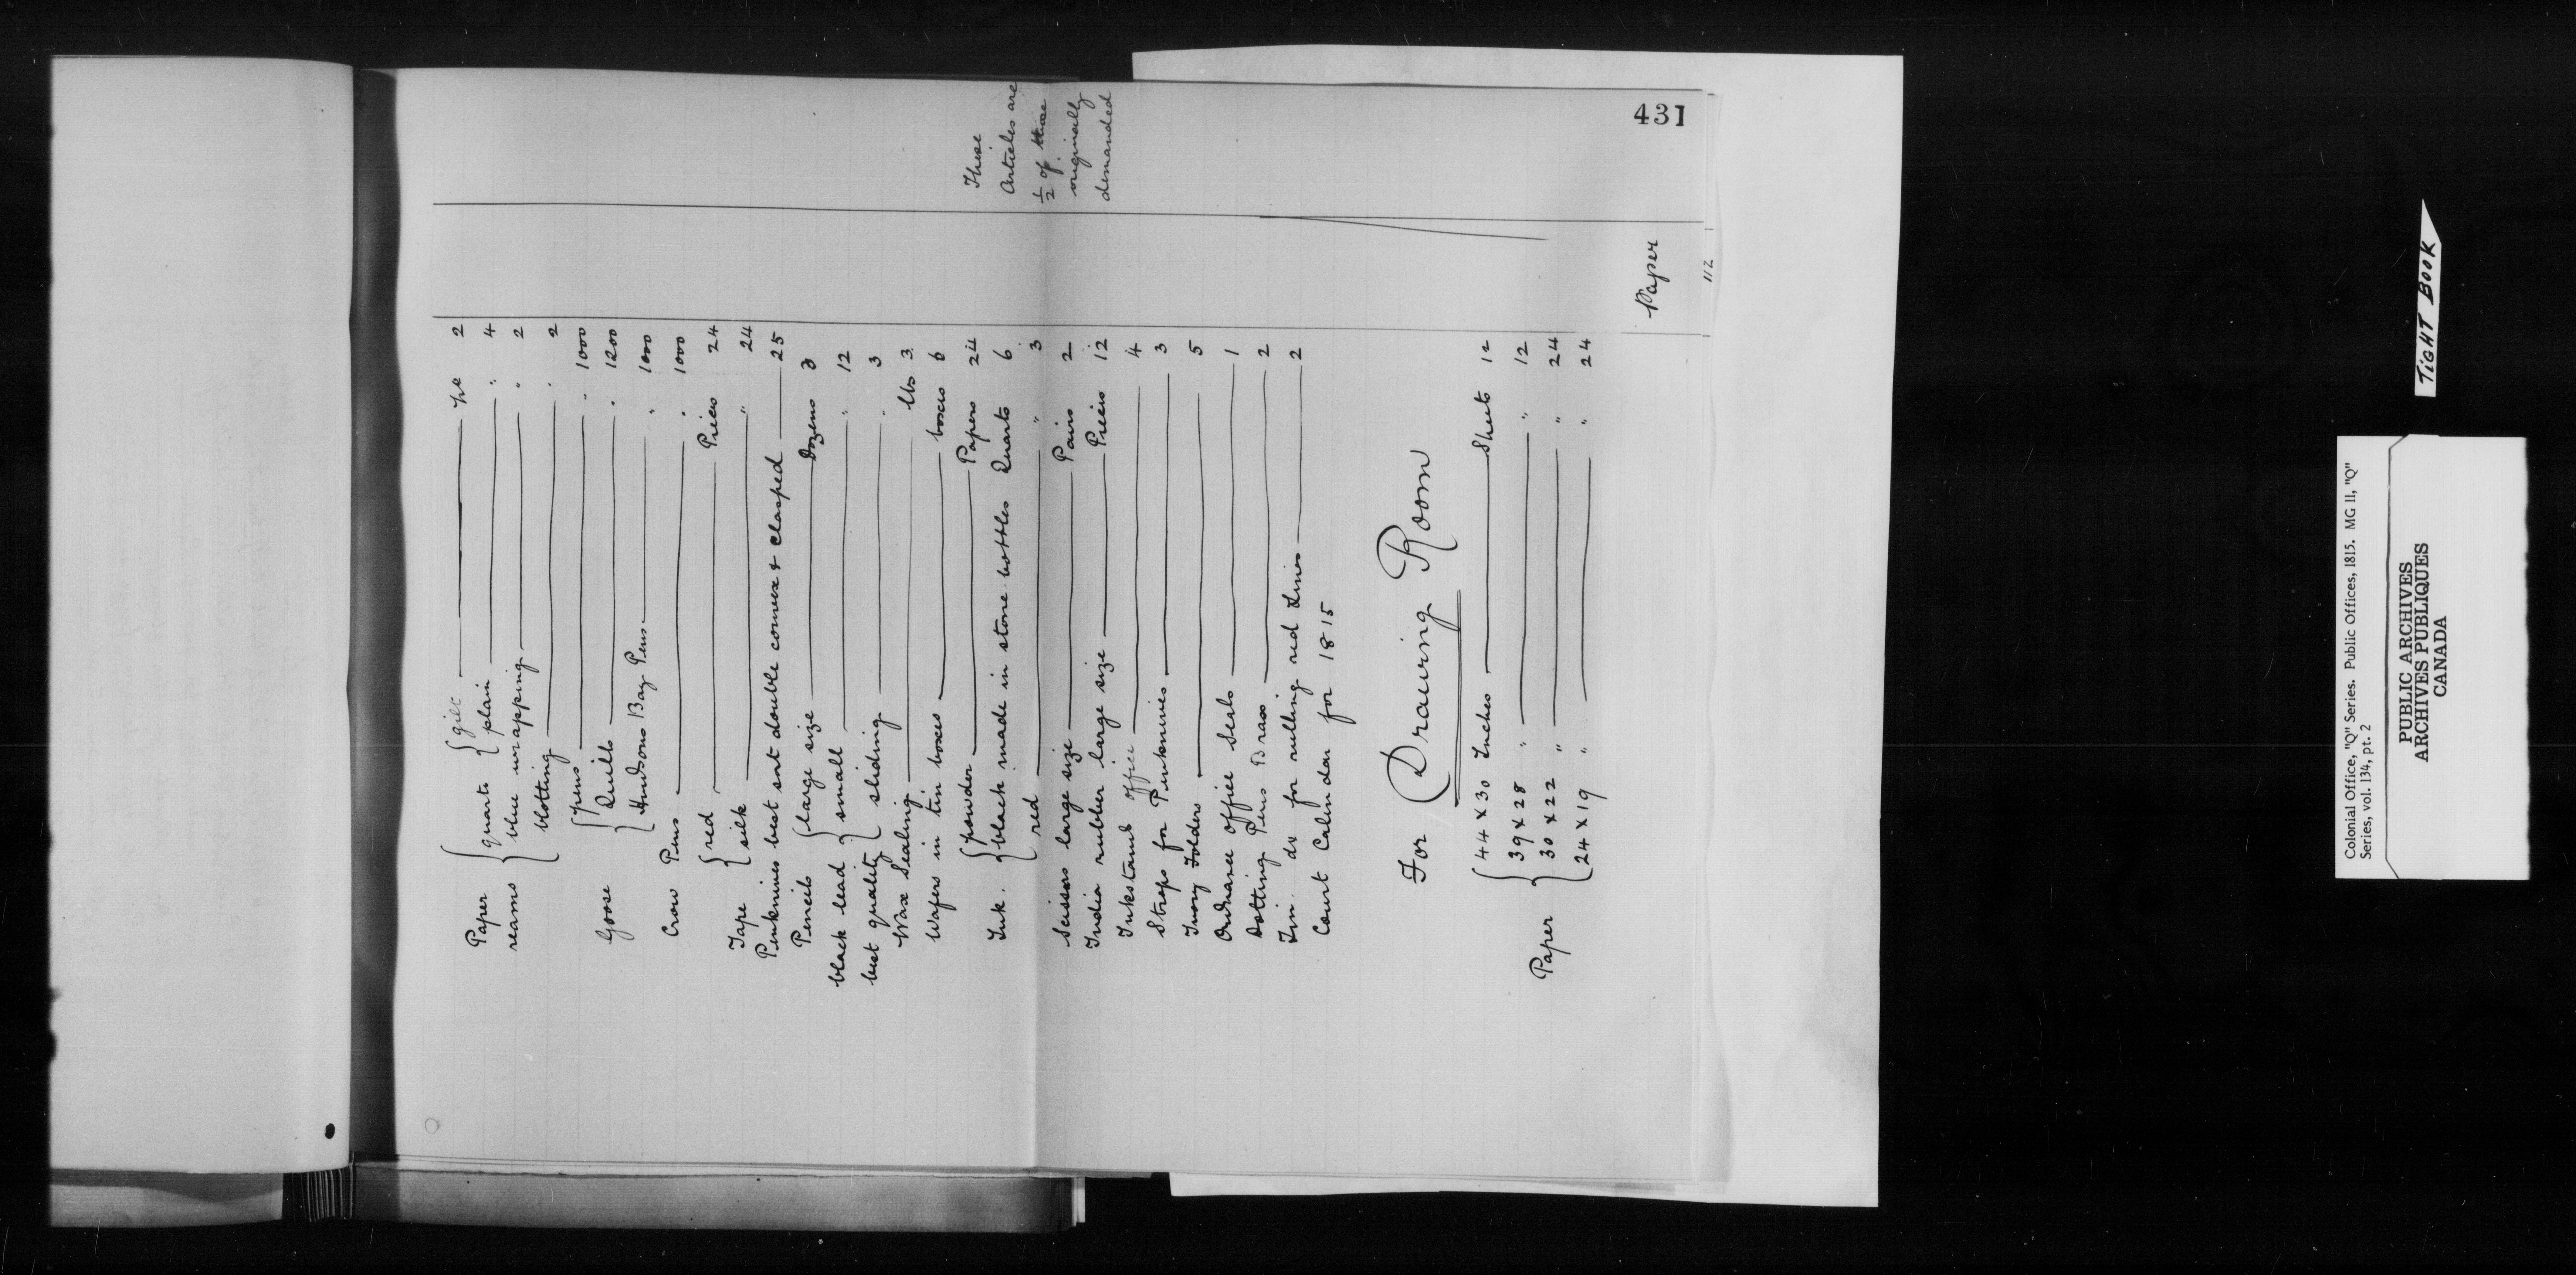 431
Paper { quarts { gilt No 2
reams { plain " 4
blue wrapping " 2
blotting " 2
Goose { pens " 1000
Quills " 1200
Hudsons Bay Pens " 1000
Crow Pens " 1000
Tape { red Pieces 24
silk " 24
Penknives best sort double convex & clasped 25
Pencils { large size Dozens 3
black lead { small " 12
best quality { sliding " 3
Wax Sealing lbs 3
Wafers in tin boxes boxes 6
Ink. { powder Papers 24
black made in stone bottles Quarts 6
red " 3
Scissors large size Pairs 2
India rubber large size Pieces 12
Inkstands office 4
Straps for Penknives 3
Ivory Folders 5
Ordnance office Seals 1
Dotting Pens Brass 2
Tin do for rulling red Lines 2
Court Calendar for 1815
These
Articles are
½ of those
originally
demanded
For Drawing Room
Paper { 44 x 30 Inches Sheets 12
39 x 28 " " 12
30 x 22 " " 24
24 x 19 " " 24
Paper
112
TIGHT BOOK
Colonial Office, "Q" Series. Public Offices, 1815. MG 11, "Q"
Series, vol. 134, pt. 2
PUBLIC ARCHIVES
ARCHIVES PUBLIQUES
CANADA